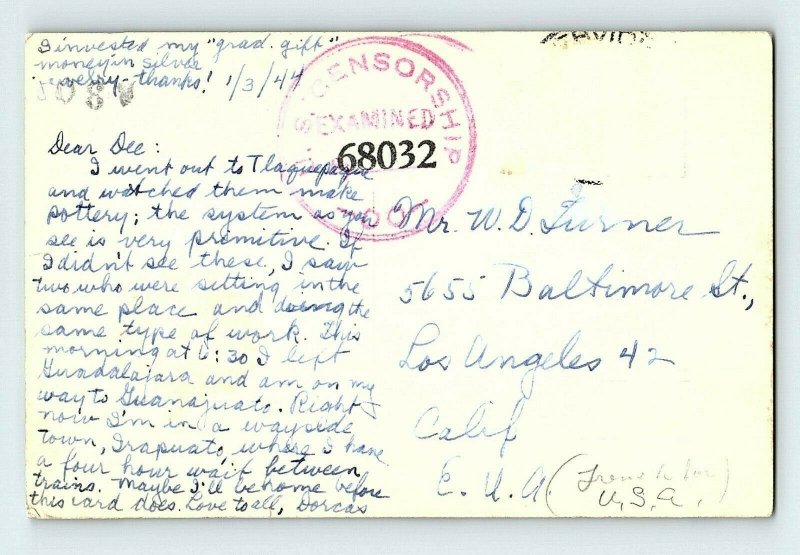 I invested my "grad. gift"
money in silver
jewelry - thanks! 1/3/44
U.S. CENSORSHIP
EXAMINED
68032
Dear Dee:
I went out to Tlaquepaque
and watched them make
pottery; the system as you
see is very primitive. If
I didn't see these, I saw
two who were sitting in the
same place and doing the
same type of work. This
morning at 6:30 I left
Guadalajara and am on my
way to Guanajuato. Right
now I'm in a wayside
town, Irapuato, where I have
a four hour wait between
trains. Maybe I'll be home before
this card does. Love to all, Dorcas
Mr. W. D. Turner
5655 Baltimore St.,
Los Angeles 42
Calif
E. U. A. (French for
U.S.A.)